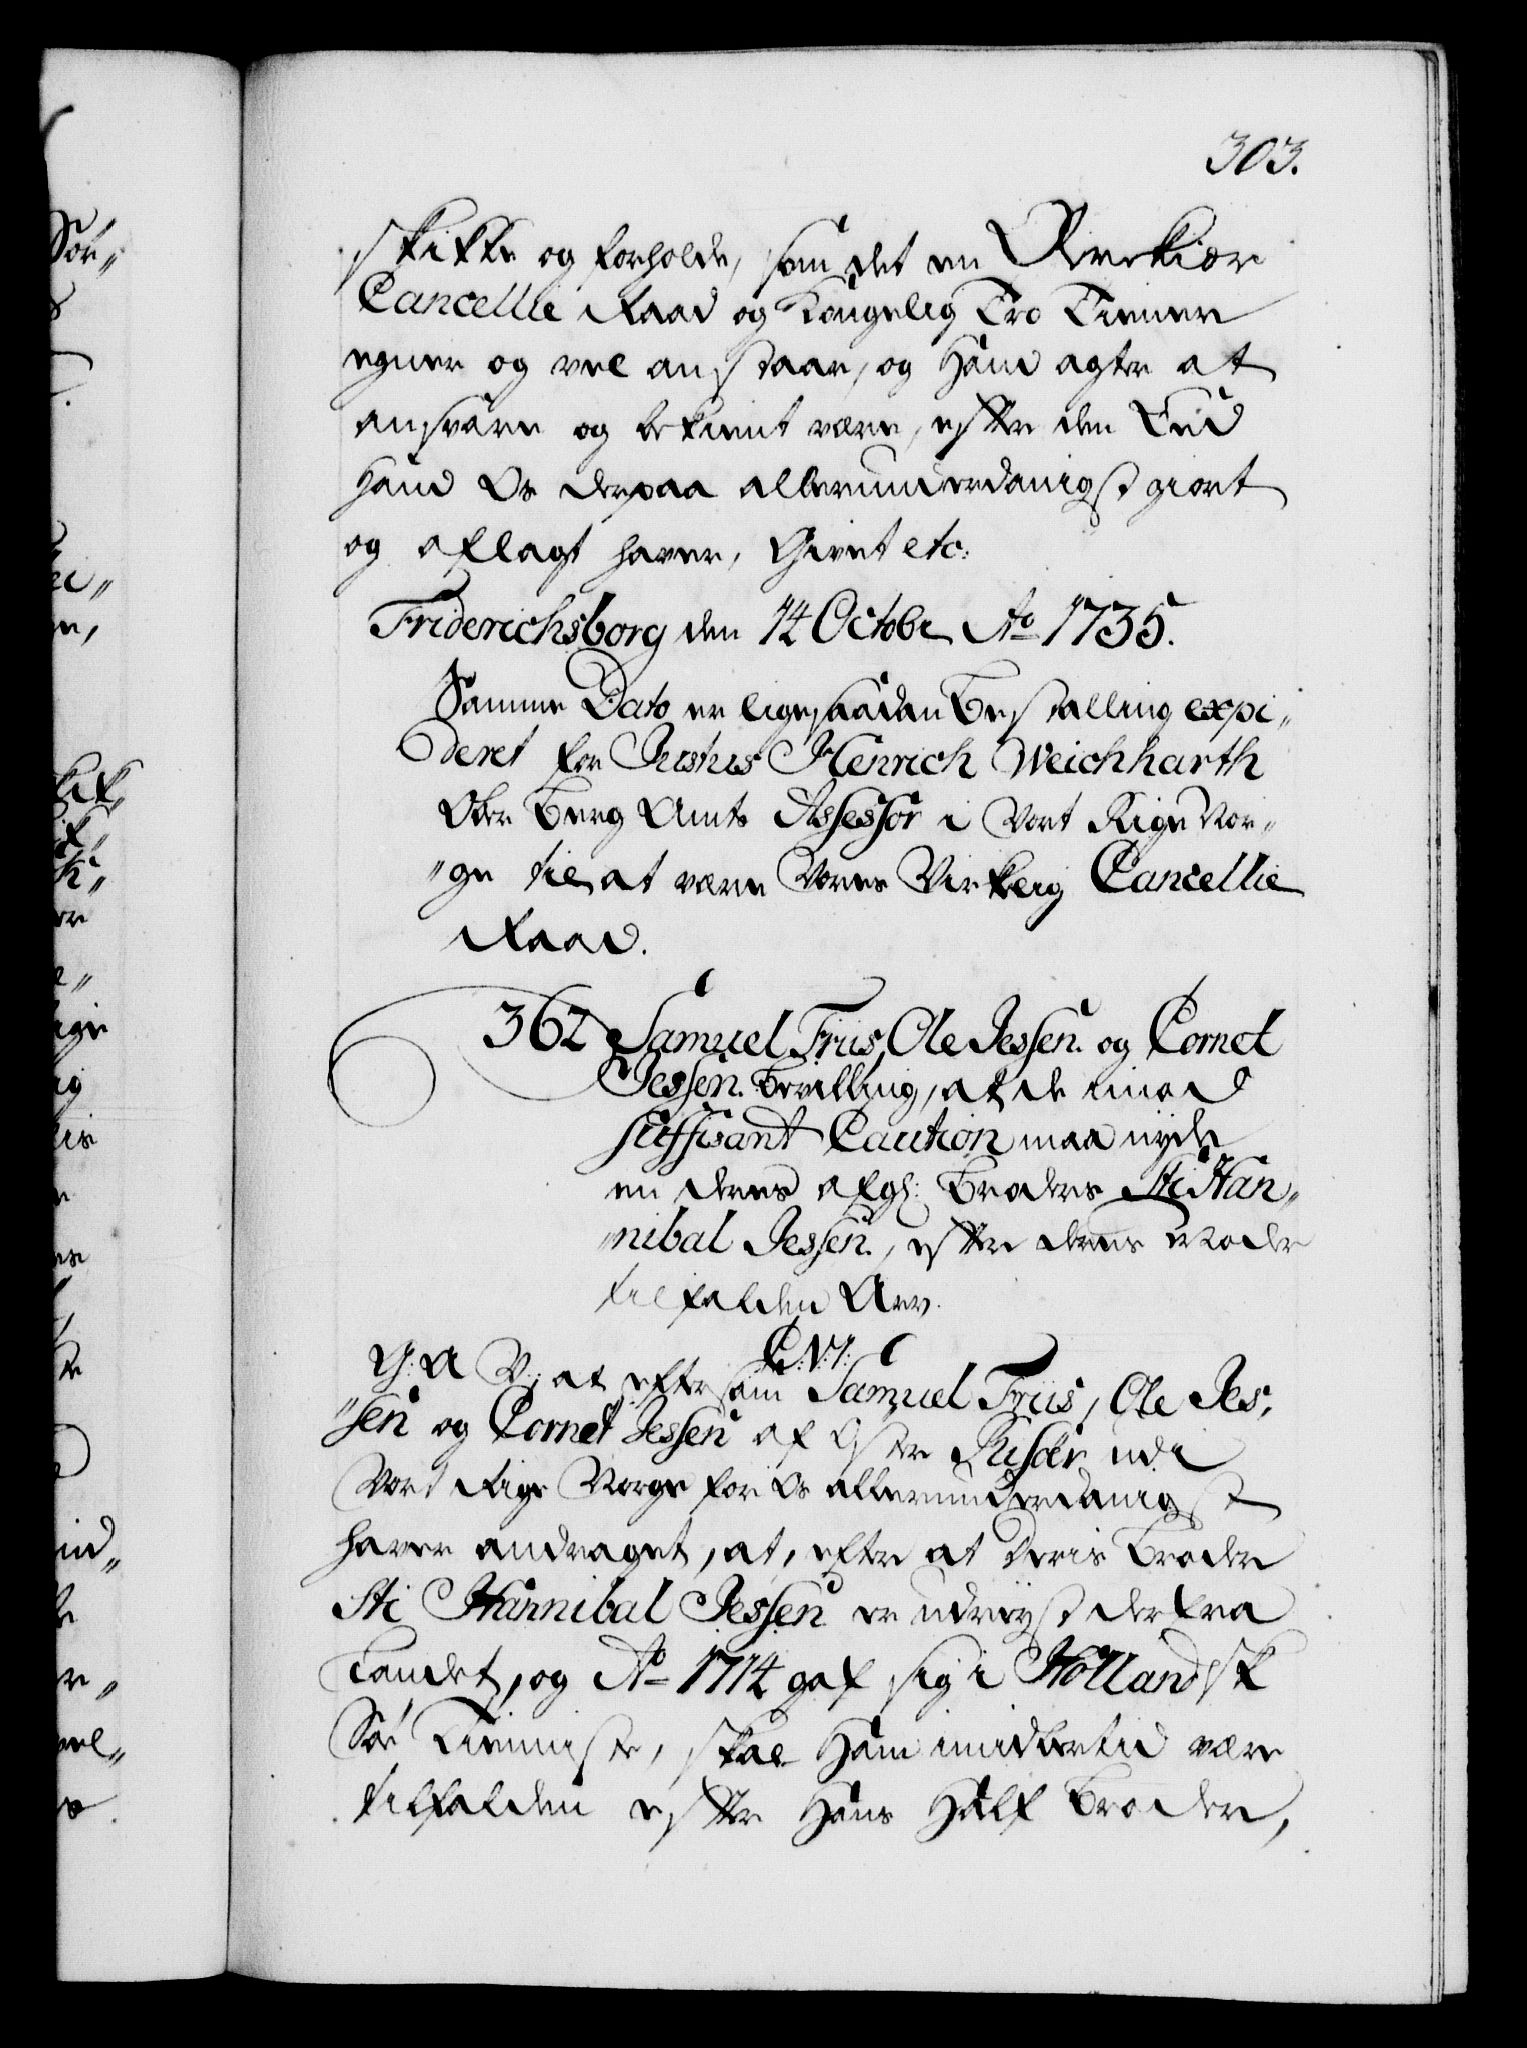 303.
skikke og forholde, som det en
Cancellie Raad og Kongelig Tro Tiener
egner og vel anstaar, og Hand agter at
ansvare og bekient være, efter den Eed
Hand Os derpaa allerunderdanigst giort
og aflagt haver, Givet etc:
Friderichsborg den 14 Octobr Ao 1735.
Samme Dato er ligesaadan Bestalling expe¬
deret for Justus Henrich Weichharth
Ober Berg Amts Assessor i Vort Rige Nor¬
"ge til at være Vores Virkelig Cancellie
Raad.
362 Samuel Friis, Ole Jessen og Cornet
Jessen Bevilling, at de imod
suffisant Caution maa nyde
en deres afg: Broders Sti Han¬
"nibal Jessen, efter deres Moder
tilfalden Arv.
C: VI:
G: A V: at eftersom Samuel Friis, Ole Jes¬
"sen og Cornet Jessen af Øster Riisøer udi
Vort Rige Norge for Os allerunderdanigst
haver andraget, at, efter at deris Broder
Sti Hannibal Jessen er udreyst der fra
Landet, og Ao 1714 gaf sig i Hollandsk
Søe Tienniste, skal Ham imidlertid være
tilfalden efter Hans Half Broder,